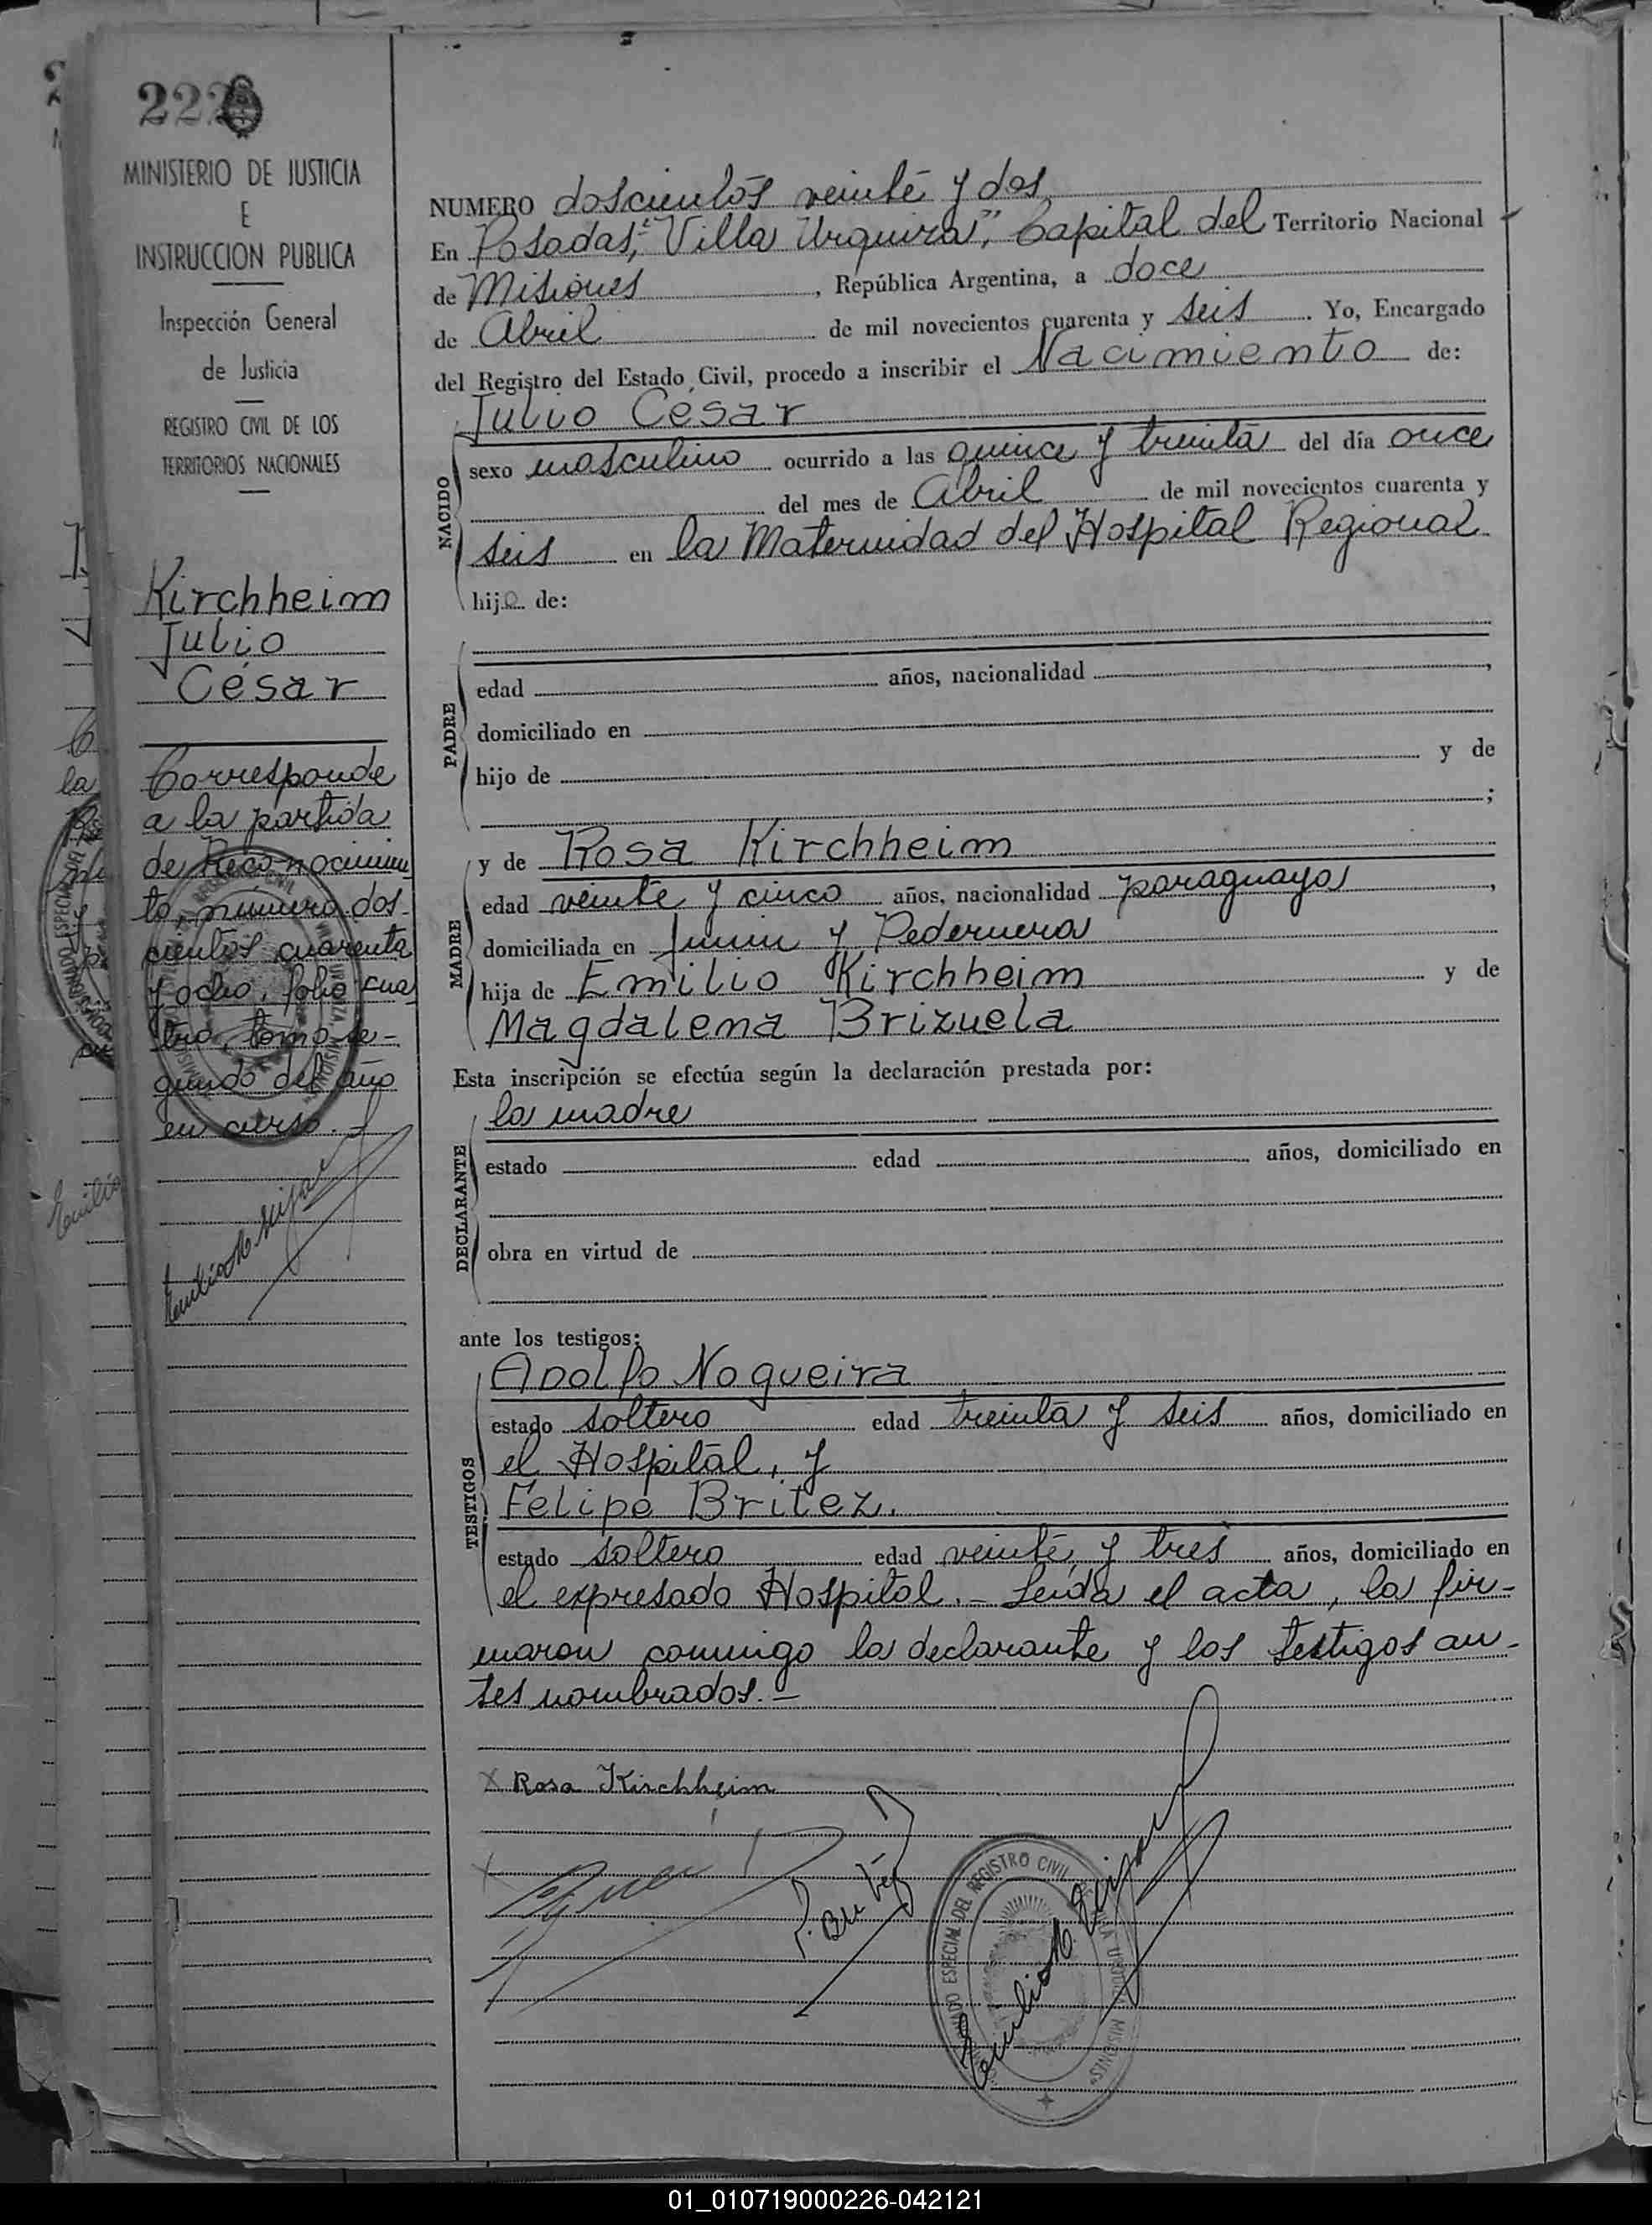 222
MINISTERIO DE JUSTICIA
E
INSTRUCCION PUBLICA
Inspección General
de Justicia
REGISTRO CIVIL DE LOS
TERRITORIOS NACIONALES
Kirchheim
Julio
César
Corresponde
a la partida
de Reconocimien
to, número dos-
cientos cuarenta
y ocho, folio cua
tro, tomo se-
gundo del año
en curso.-
NUMERO doscientos veinte y dos
En Posadas, "Villa Urquiza", Capital del Territorio Nacional
de Misiones, República Argentina, a doce
de Abril de mil novecientos cuarenta y seis. Yo, Encargado
del Registro del Estado Civil, procedo a inscribir el Nacimiento de:
Julio César
NACIDO
sexo masculino ocurrido a las quince y treinta del día once
del mes de Abril de mil novecientos cuarenta y
seis en la Maternidad del Hospital Regional
hijo de:
PADRE
edad años, nacionalidad ,
domiciliado en
hijo de y de
;
MADRE
y de Rosa Kirchheim
edad veinte y cinco años, nacionalidad paraguaya,
domiciliada en Junin y Pedernera
hija de Emilio Kirchheim y de
Magdalena Brizuela
Esta inscripción se efectúa según la declaración prestada por:
la madre
DECLARANTE
estado edad años, domiciliado en
obra en virtud de
ante los testigos:
Adolfo Nogueira
TESTIGOS
estado soltero edad treinta y seis años, domiciliado en
el Hospital, y
Felipe Britez.
estado soltero edad veinte y tres años, domiciliado en
el expresado Hospital.- Leída el acta, la fir-
maron conmigo la declarante y los testigos an-
tes nombrados.-
x Rosa Kirchheim
x
F. Britez
ESPECIAL DEL REGISTRO CIVIL
MISIONES
01_010719000226-042121